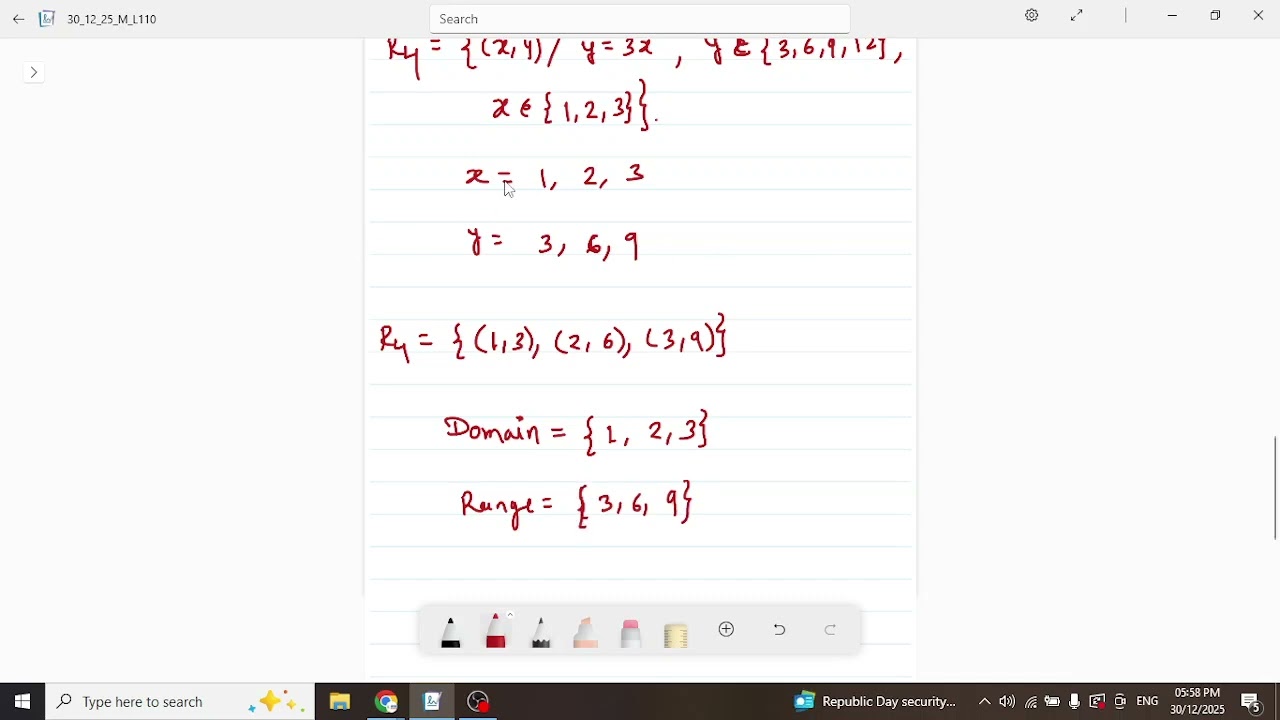 30_12_25_M_L110
Search
R4 = {(x,y)/ y=3x , y ∈ {3,6,9,12},
x ∈ {1,2,3}}.
x = 1, 2, 3
y = 3, 6, 9
R4 = {(1,3), (2,6), (3,9)}
Domain = {1, 2, 3}
Range = {3, 6, 9}
Type here to search
Republic Day security...
ENG
05:58 PM
30/12/2025
5